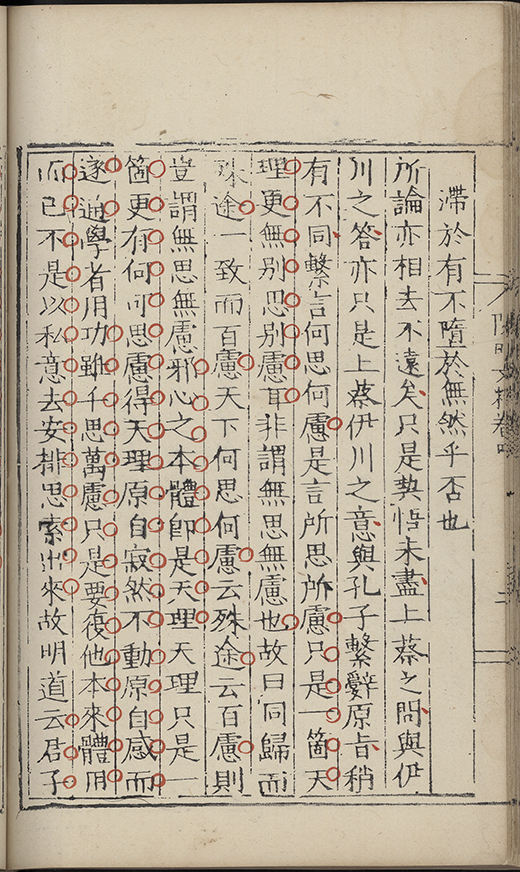 陽明文粹卷四
二
滯於有不墮於無然乎否也
所論亦相去不遠矣只是契悟未盡上蔡之問與伊
川之答亦只是上蔡伊川之意與孔子繫辭原旨稍
有不同繫言何思何慮是言所思所慮只是一箇天
理更無别思别慮耳非謂無思無慮也故曰同歸而
殊途一致而百慮天下何思何慮云殊途云百慮則
豈謂無思無慮邪心之本體即是天理天理只是一
箇更有何可思慮得天理原自寂然不動原自感而
遂通學者用功雖千思萬慮只是要復他本來體用
而已不是以私意去安排思索出來故明道云君子